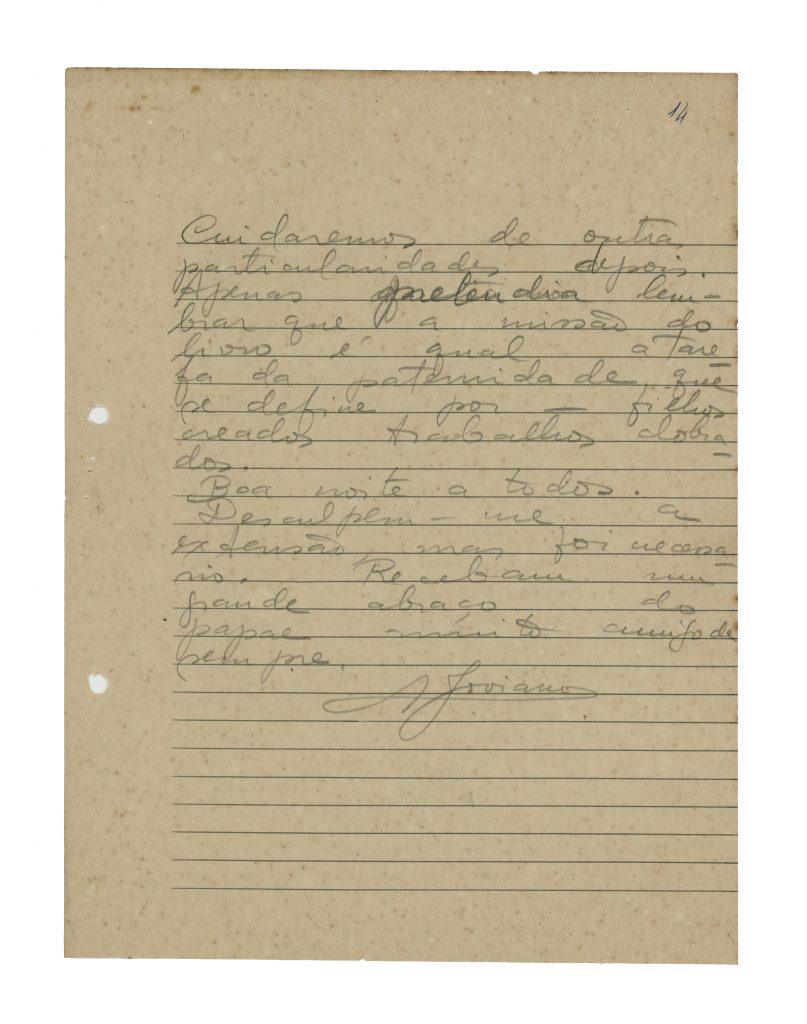 14
Cuidaremos de outras
particularidades depois.
Apenas pretendia lem-
brar que a missão do
livro é qual a tare-
fa da paternidade que
se define por — filhos
creados trabalhos dobra-
dos.
Boa noite a todos.
Desculpem-me a
extensão, mas foi necessa-
rio. Recebam um
grande abraço do
papae muito amigo de
sempre.
A Joviano